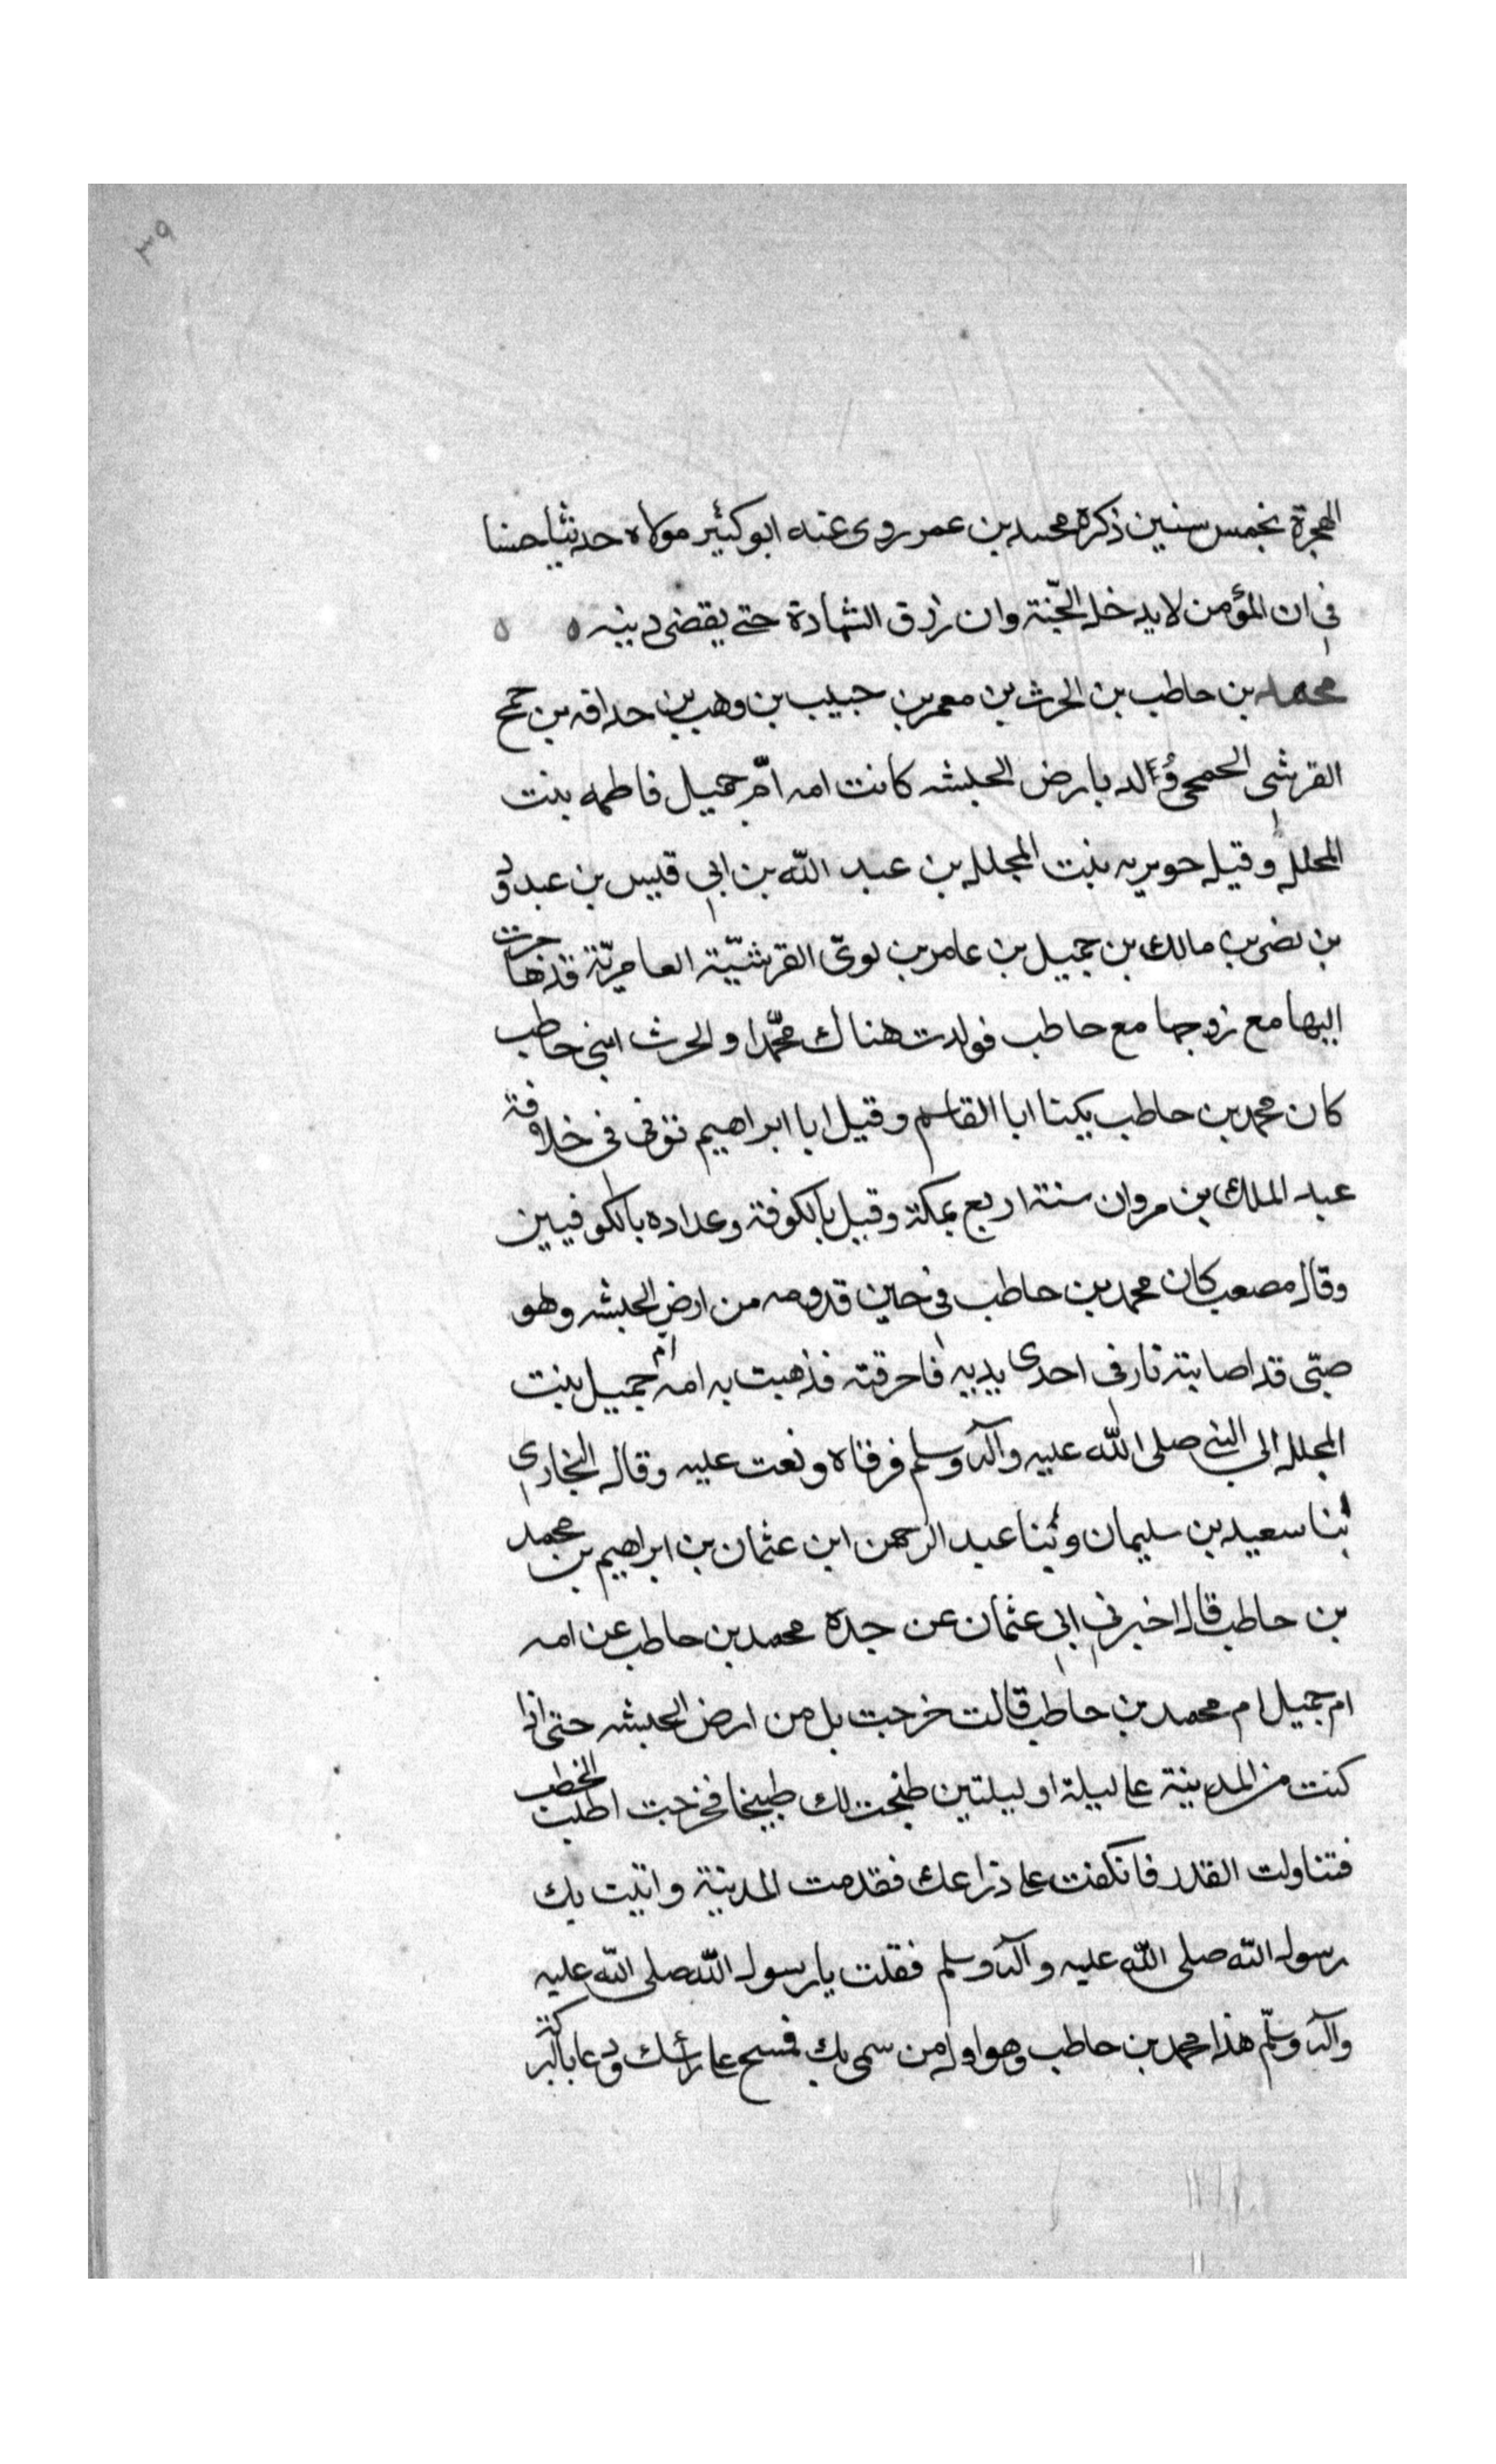 ٣٩
الهجرة بخمس سنين ذكره محمد بن عمر روى عنه ابو كثير مولاه حديثا حسنا
في ان المؤمن لا يدخل الجنّة وان رزق الشهادة حتى يقضى دينه ه ه
محمد بن حاطب بن الحرث بن معمر بن حبيب بن وهب بن حذافه بن جمح
القرشى الجمحى وُلد بارض الحبشه كانت امه امّ جميل فاطمه بنت
المجلل وقيل جويريه بنت المجلل بن عبد الله بن ابي قيس بن عبد ودّ
بن نضر بن مالك بن جميل بن عامر بن لوىّ القرشيّة العامريّة قد هاجرت
اليها مع زوجها مع حاطب فولدت هناك محمّدا والحرث ابنى حاطب
كان محمد بن حاطب يكنا ابا القاسم وقيل ابا ابراهيم توفى فى خلافة
عبد الملك بن مروان سنة اربع بمكة وقيل بالكوفة وعداده بالكوفيين
وقال مصعب كان محمد بن حاطب فى حين قدومه من ارض الحبشه وهو
صبّى قد اصابته نار فى احدى يديه فاحرقته فذهبت به امه امّ جميل بنت
المجلل الى النبى صلى الله عليه وآله وسلم فرقاه ونفت عليه وقال البخارى
ثنا سعيد بن سليمان وثنا عبد الرحمن ابن عثمان بن ابراهيم بن محمد
بن حاطب قال اخبرنى ابى عثمان عن جده محمد بن حاطب عن امه
ام جميل ام محمد بن حاطب قالت خرجت بك من ارض الحبشه حتى اذا
كنت من المدينة على ليلة او ليلتين طبخت لك طبيخا فخرجت اطلب الحطب
فتناولت القدر فانكفت على ذراعك فقدمت المدينة واتيت بك
رسول الله صلى الله عليه وآله وسلم فقلت يا رسول الله صلى الله عليه
وآله وسلّم هذا محمد بن حاطب وهو اول من سمى بك فمسح على رأسك ودعا بالبركة